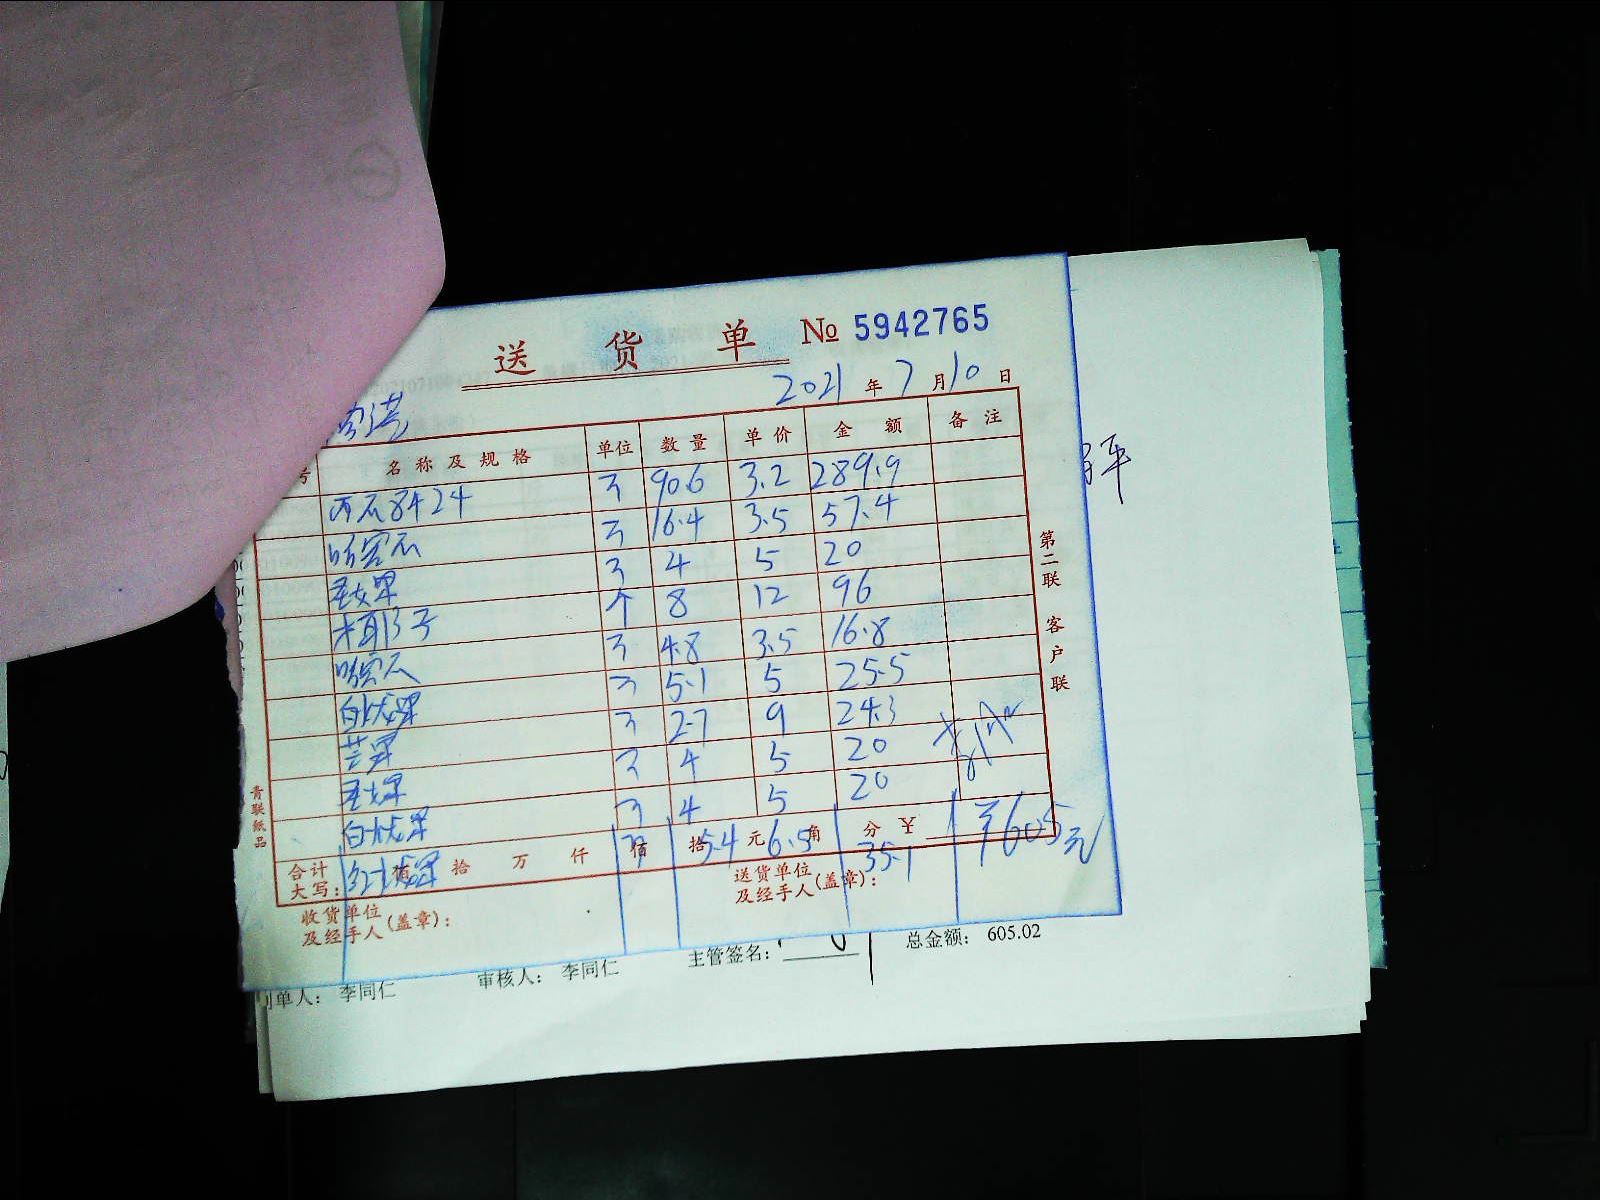 送货单 № 5942765
2021年7月10日
号 名称及规格 单位 数量 单价 金额 备注
西瓜8424 90.6 3.2 289.9
哈密瓜 16.4 3.5 57.4
圣女果 4 5 20
木耶子 个 8 12 96
哈密瓜 4.8 3.5 16.8
白火龙果 5.1 5 25.5
芒果 2.7 9 24.3
圣女果 4 5 20
白火龙果 4 5 20
红火龙果 5.4 6.5 35.1
合计
大写: 佰 拾 万 仟 佰 拾 元 角 分 ¥ ¥605元
收货单位
及经手人(盖章):
送货单位
及经手人(盖章):
第二联 客户联
青联纸品
平
制单人: 李同仁 审核人: 李同仁 主管签名: 总金额: 605.02